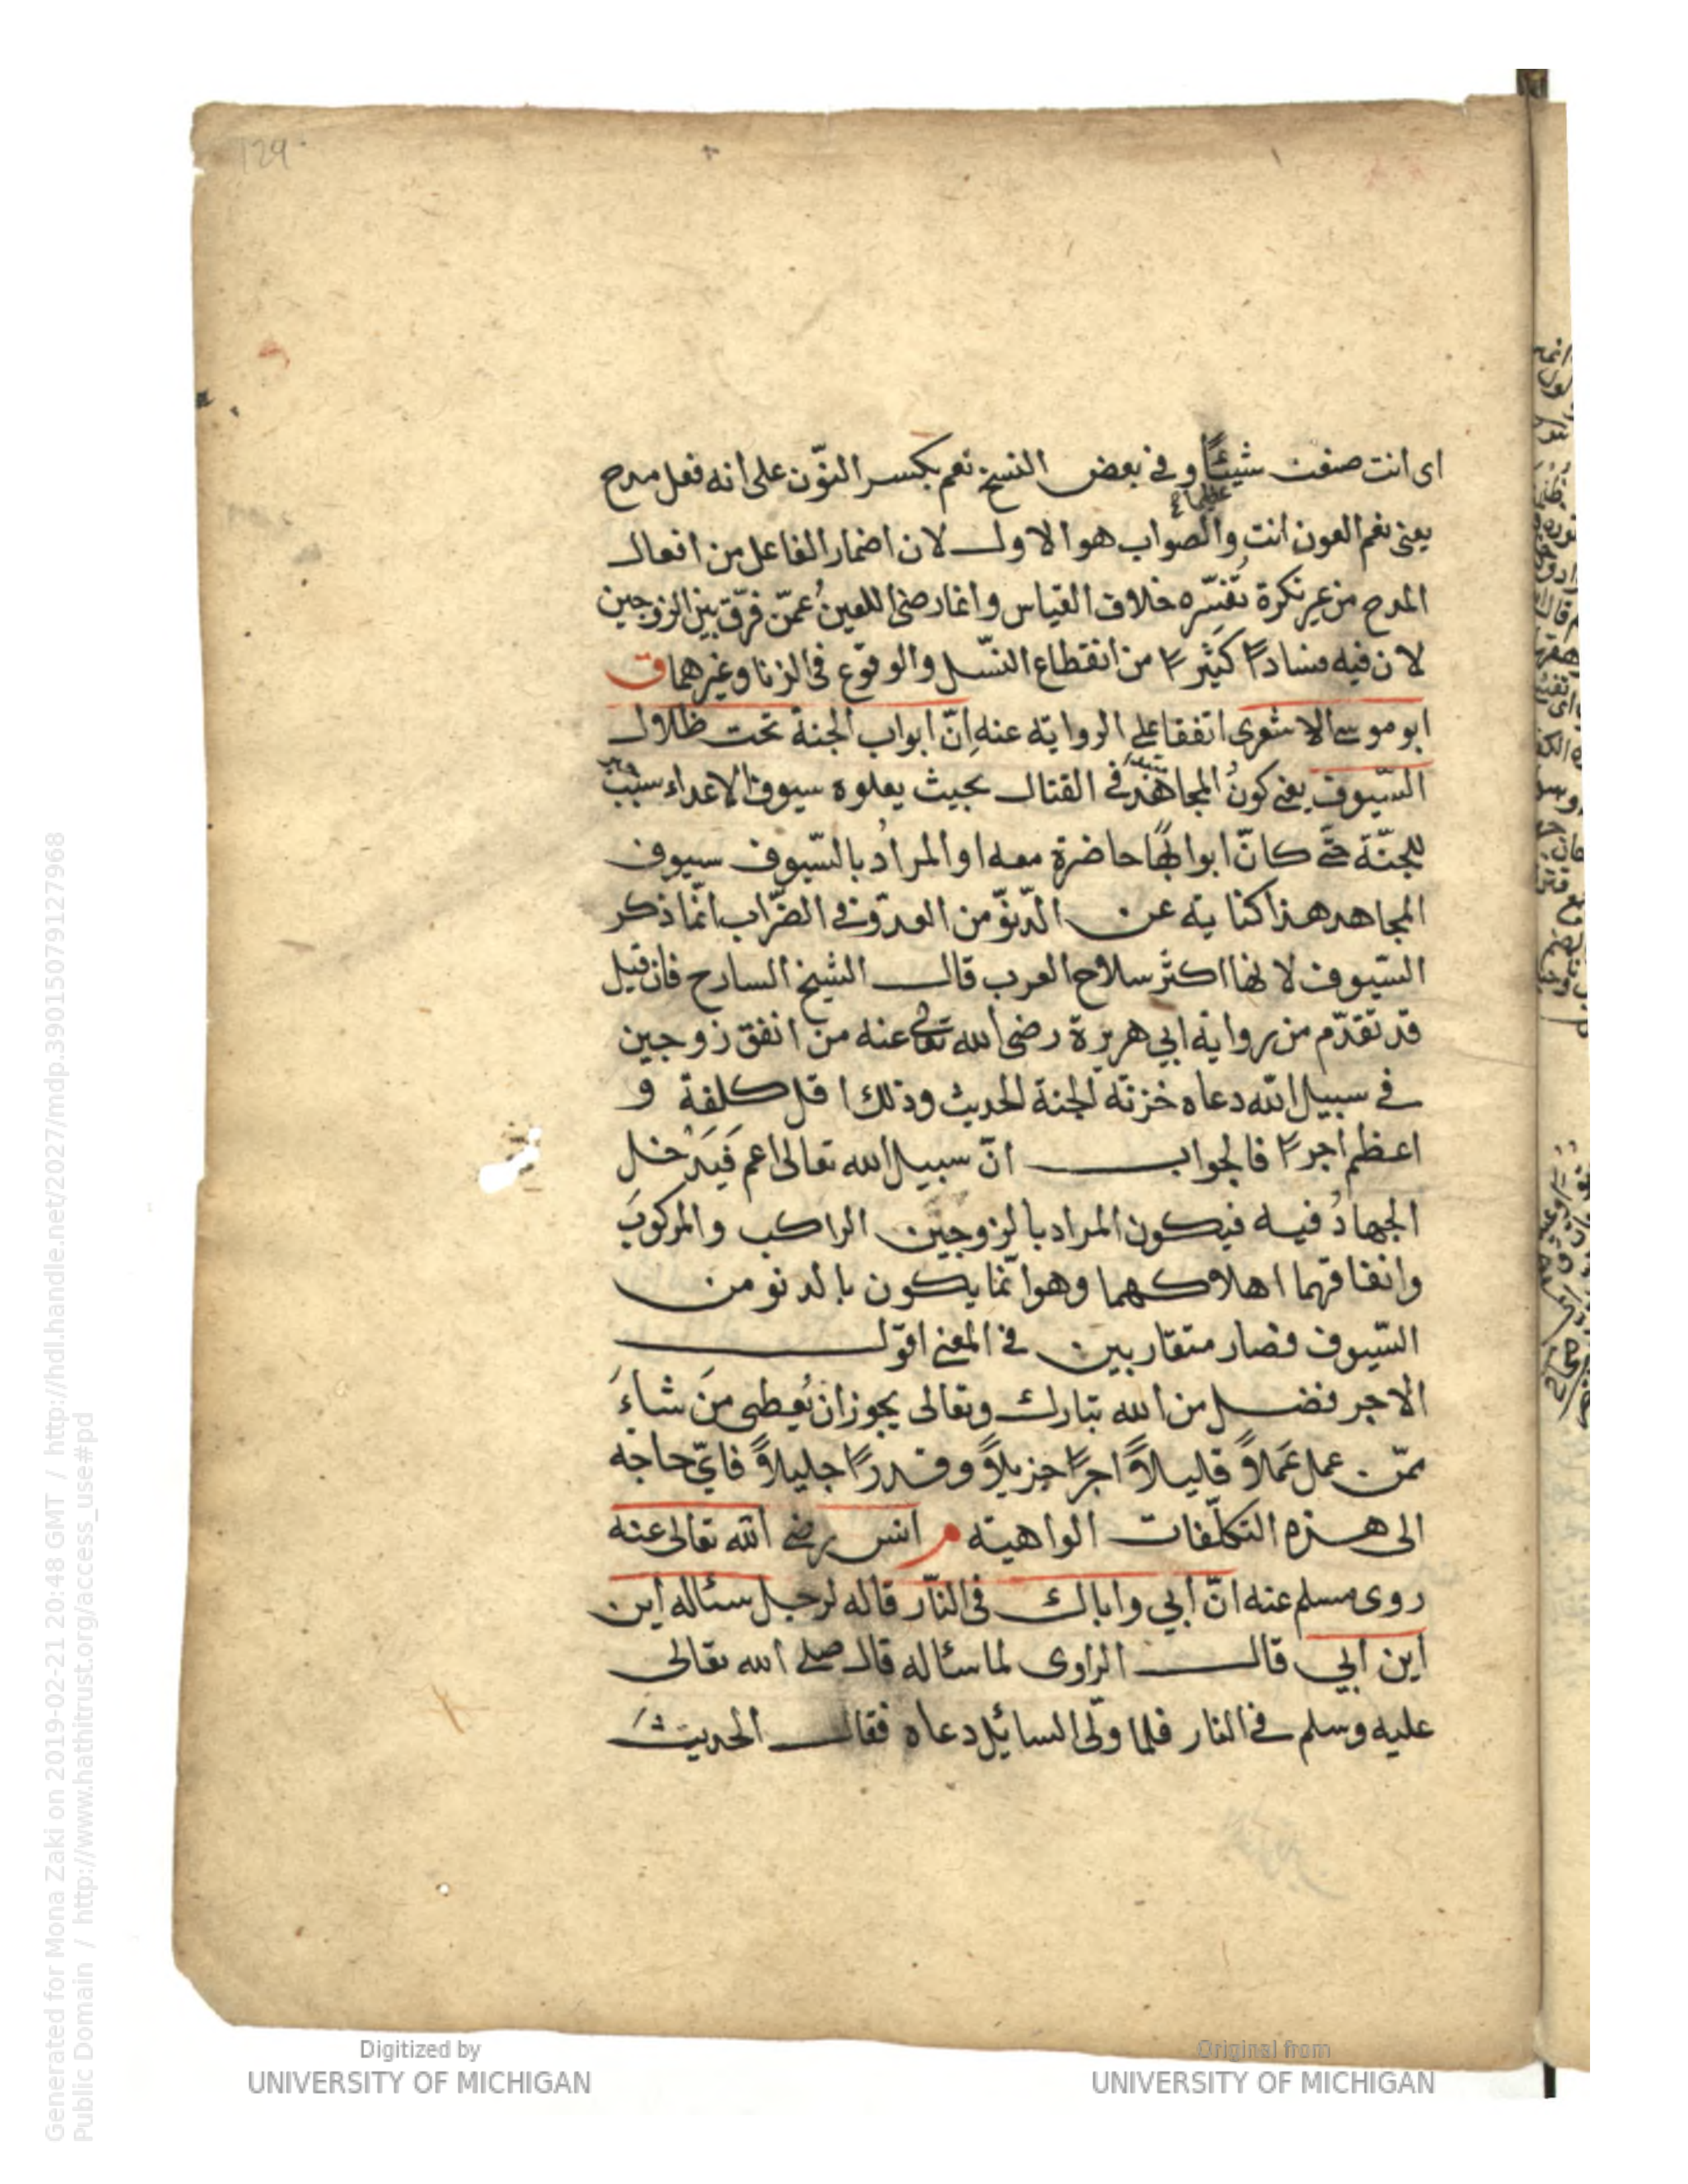 129
اى انت صنعت شيئًا وفى بعض النسخ نعم بكسر النّون على انه فعل مدح
عظيما
يعنى نعم العون انت والصواب هو الاول لان اضمار الفاعل من افعال
المدح من غير نكرة تفسّره خلاف القياس وانما رضى اللعين عمّن فرّق بين الزوجين
لان فيه فسادًا كثيرًا من انقطاع النسل والوقوع فى الزنا وغيرهما ق
ابو موسى الاشعرى اتفقا على الرواية عنه انّ ابواب الجنة تحت ظلال
السّيوف يعنى كون المجاهد فى القتال بحيث يعلوه سيوف الاعداء سبب
للجنّة حتى كانّ ابوابها حاضرة معه او المراد بالسّيوف سيوف
المجاهد هذا كناية عن الدّنوّ من العدوّ فى الضّراب انّما ذكر
السّيوف لانها اكثر سلاح العرب قال الشيخ الشارح فان قيل
قد تقدّم من رواية ابي هريرة رضى الله تعالى عنه من انفق زوجين
فى سبيل الله دعاه خزنة الجنة الحديث وذلك اقل كلفة و
اعظم اجرًا فالجواب انّ سبيل الله تعالى اعم فَيَدْخل
الجهادُ فيه فيكون المراد بالزوجين الراكب والمركوبَ
وانفاقهما اهلاكهما وهو انّما يكون بالدنو من
السّيوف فصار متقاربين فى المعنى اقول
الاجر فضل من الله تبارك وتعالى يجوز ان يُعطى مَن شاءَ
ممّن عمل عَملاً قليلاً اجرًا جزيلاً وقدرًا جليلاً فايّ حاجه
الى هذه التكلّفات الواهية م انس رضى الله تعالى عنه
روى مسلم عنه انّ ابي واباك فى النّار قاله لرجل سئاله اين
اين ابي قال الراوى لما سئاله قال صلى الله تعالى
عليه وسلم فى النار فلما ولّى السائل دعاه فقال الحديث
Digitized by
UNIVERSITY OF MICHIGAN
Original from
UNIVERSITY OF MICHIGAN
Generated for Mona Zaki on 2019-02-21 20:48 GMT / http://hdl.handle.net/2027/mdp.39015079127968
Public Domain / http://www.hathitrust.org/access_use#pd